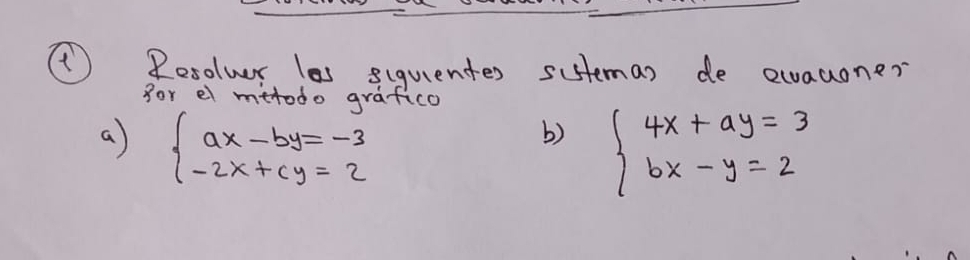 ① Resolver los siguientes sistemas de ecuaciones
por el método gráfico
a) { ax - by = -3
-2x + cy = 2
b) { 4x + ay = 3
bx - y = 2